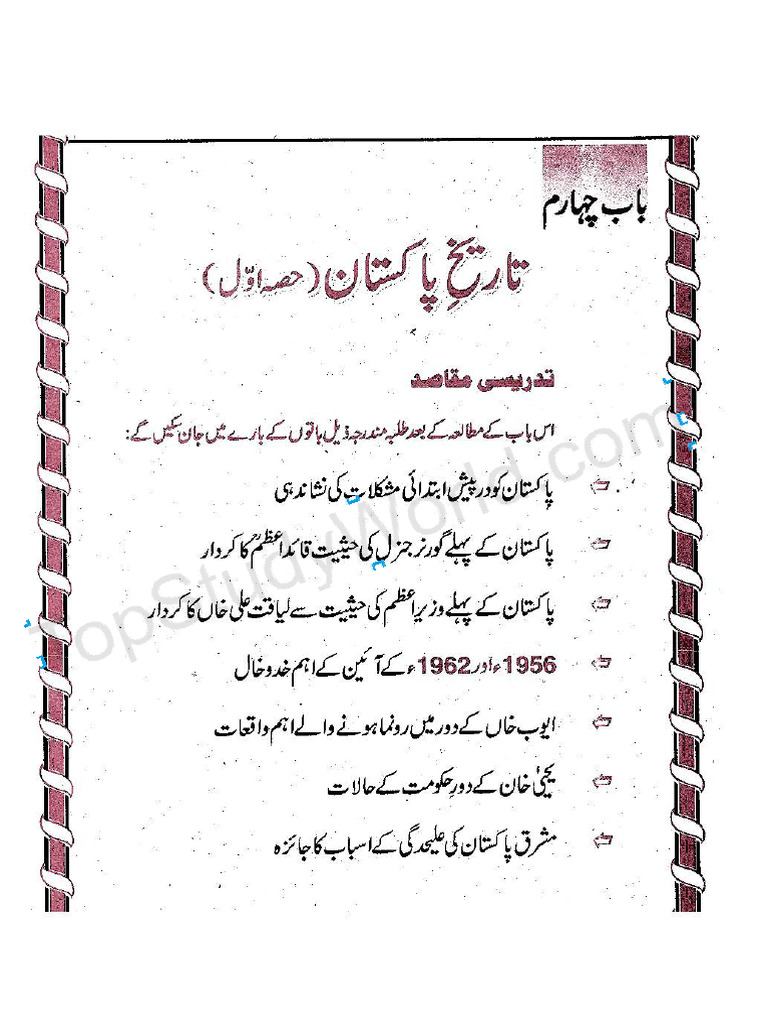 باب چہارم
تاریخِ پاکستان (حصہ اوّل)
تدریسی مقاصد
اس باب کے مطالعہ کے بعد طلبہ مندرجہ ذیل باتوں کے بارے میں جان سکیں گے:
پاکستان کو درپیش ابتدائی مشکلات کی نشاندہی
پاکستان کے پہلے گورنر جنرل کی حیثیت قائداعظمؒ کا کردار
پاکستان کے پہلے وزیرِاعظم کی حیثیت سے لیاقت علی خاں کا کردار
1956ء اور 1962ء کے آئین کے اہم خدوخال
ایوب خاں کے دور میں رونما ہونے والے اہم واقعات
یحییٰ خان کے دورِ حکومت کے حالات
مشرقی پاکستان کی علیحدگی کے اسباب کا جائزہ
TopStudyWorld.com